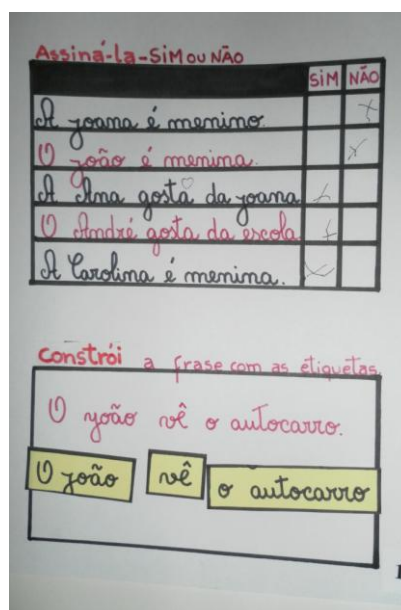 Assiná-la-SiM ou NÃO
SiM NÃO
A joana é menino.
O joão é menina.
A Ana gosta da joana
O André gosta da escola
A Carolina é menina.
Constrói a frase com as etiquetas.
O joão vê o autocarro.
O joão vê o autocarro